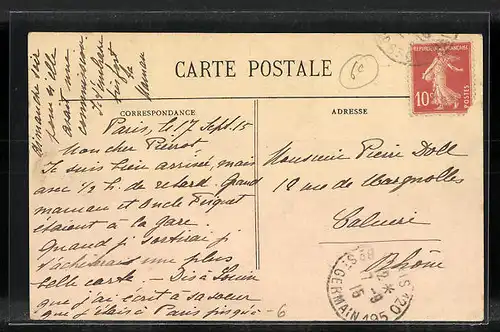 CARTE POSTALE
CORRESPONDANCE
ADRESSE
REPUBLIQUE FRANÇAISE
10c
POSTES
Paris, le 17 Sept. 15
Mon cher Pierrot
Je suis bien arrivée, mais
avec 1/2 h. de retard. Grand
maman et Oncle
étaient à la gare.
Quand je sortirai je
t'achèterai une plus
belle carte. — Dis à
que j'ai écrit à sa sœur
que j'étais à Paris jusqu'à — 6
commission.
Je t'embrasse
bien fort
ta
Maman
Monsieur Pierre Doll
18 rue de Margnolles
Caluire
Rhône
St GERMAIN 195